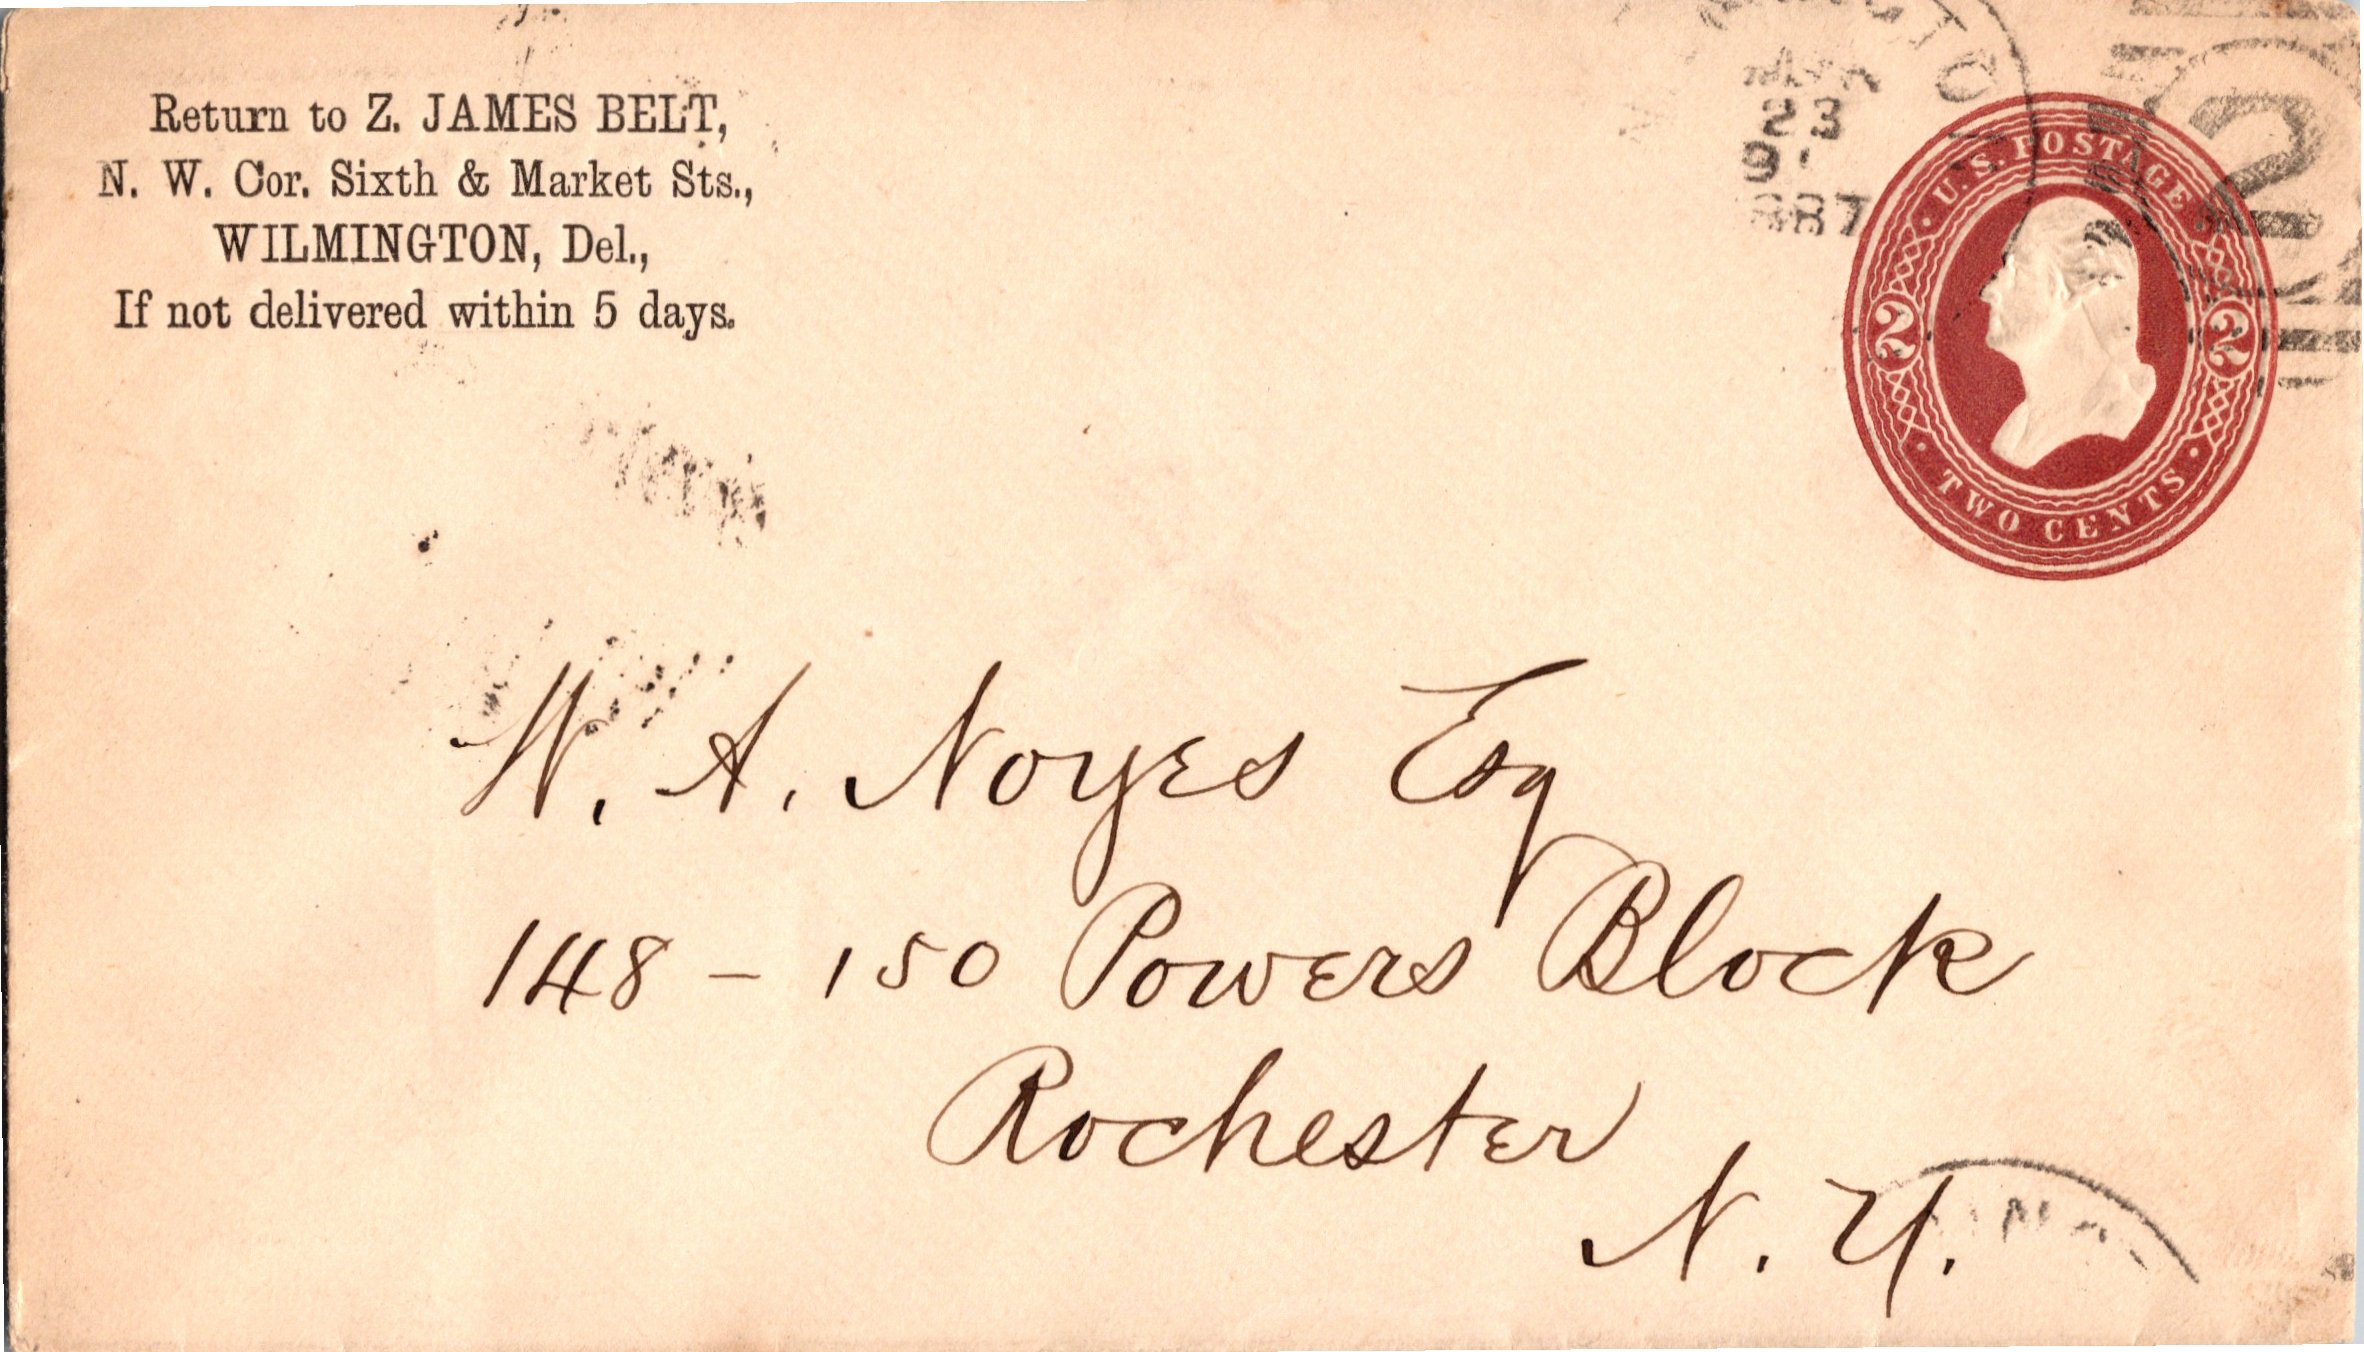 Return to Z. JAMES BELT,
N. W. Cor. Sixth & Market Sts.,
WILMINGTON, Del.,
If not delivered within 5 days.
23
9
887
2
U.S. POSTAGE
2 2
TWO CENTS
W. A. Noyes Esq
148 - 150 Powers Block
Rochester
N. Y.